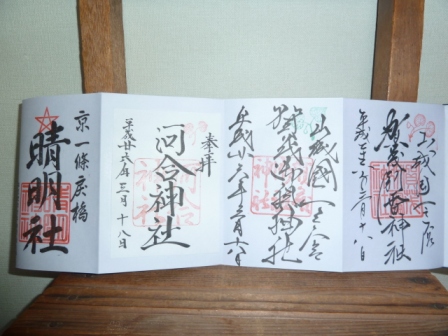 山城國一之宮
賀茂別雷神社
平成二十六年三月十八日
山城國一之宮
賀茂御祖神社
平成廿六年三月十八日
奉拝
河合神社
平成廿六年三月十八日
京一條戻橋
晴明社